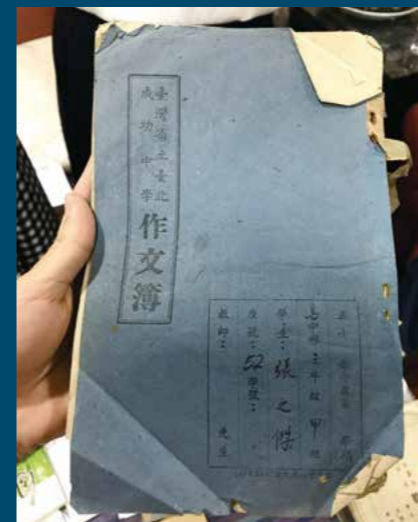 臺灣省立臺北
成功中學
作文簿
高中部三年級甲組
學生：張之傑
座號：52學號：
教師：先生